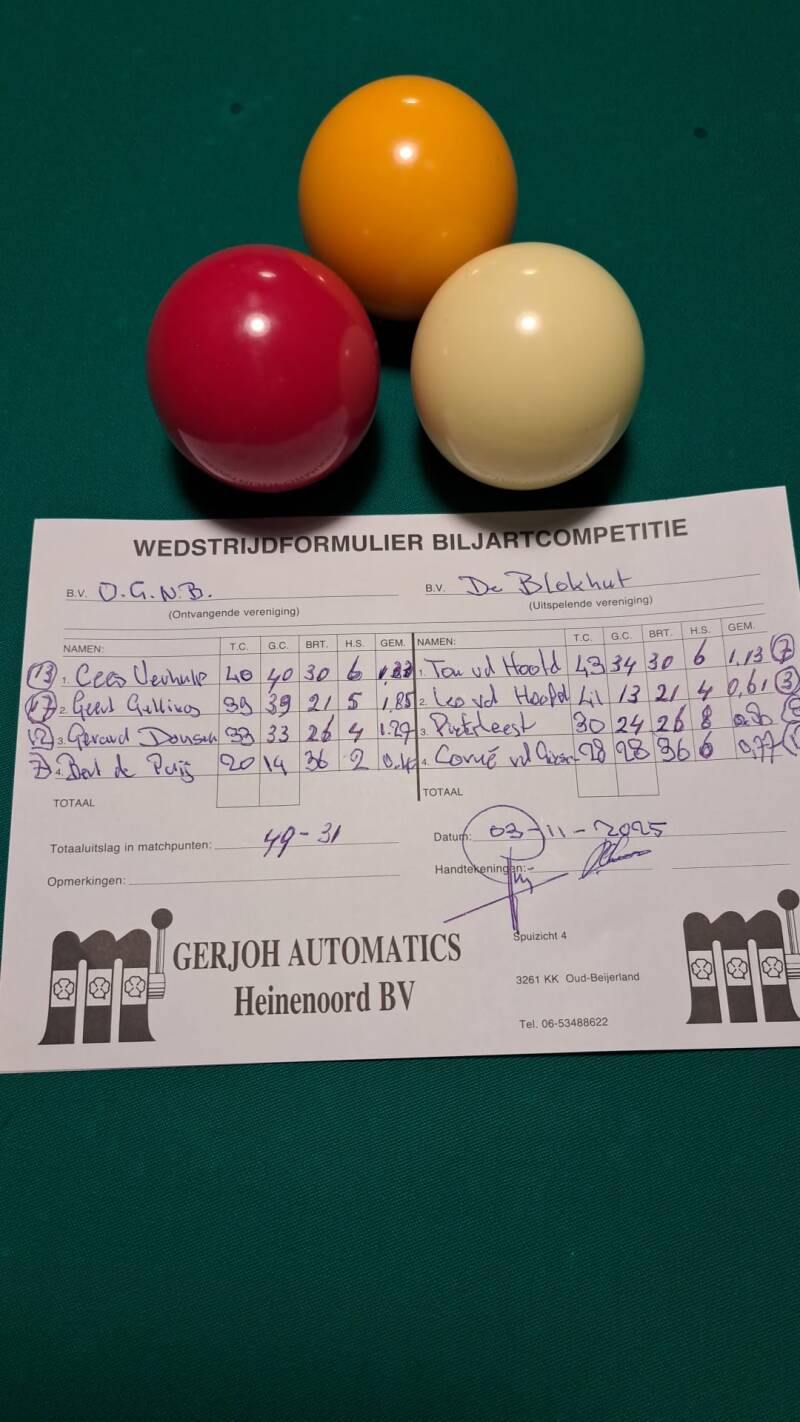 WEDSTRIJDFORMULIER BILJARTCOMPETITIE
B.V. O.G.N.B. B.V. De Blokhut
(Ontvangende vereniging) (Uitspelende vereniging)
NAMEN: T.C. G.C. BRT. H.S. GEM. NAMEN: T.C. G.C. BRT. H.S. GEM.
13 1. Cees Verhulp 40 40 30 6 1,33 1. Ton vd Hoofd 43 34 30 6 1,13 7
17 2. Geert 39 39 21 5 1,85 2. Leo vd Hoofd 41 13 21 4 0,61 3
12 3. Gerard 33 33 26 4 1.27 3. 30 24 26 8
7 4. Bert de 20 14 36 2 4. Corné vd 28 28 36 6 0,77
TOTAAL TOTAAL
Totaaluitslag in matchpunten: 49-31 Datum: 03-11-2025
Opmerkingen: Handtekeningen:
GERJOH AUTOMATICS
Heinenoord BV
Spuizicht 4
3261 KK Oud-Beijerland
Tel. 06-53488622